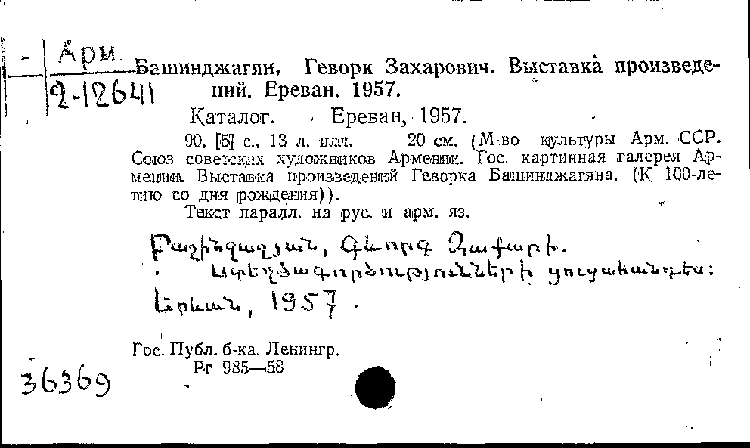 Арм.
2-12641
Башинджагян, Геворк Захарович. Выставка произведе-
ний. Ереван. 1957.
Каталог. Ереван, 1957.
90, [5] с., 13 л. илл. 20 см. (М-во культуры Арм. ССР.
Союз советских художников Армении. Гос. картинная галерея Ар-
мении. Выставка произведений Геворка Башинджагяна. (К 100-ле-
тию со дня рождения)).
Текст паралл. на рус. и арм. яз.
Բաշինջաղյան, Գևորգ Զաքարի.
Ստեղծագործությունների ցուցահանդես:
Երևան, 1957.
Гос. Публ. б-ка. Ленингр.
Рг 985—58
36369